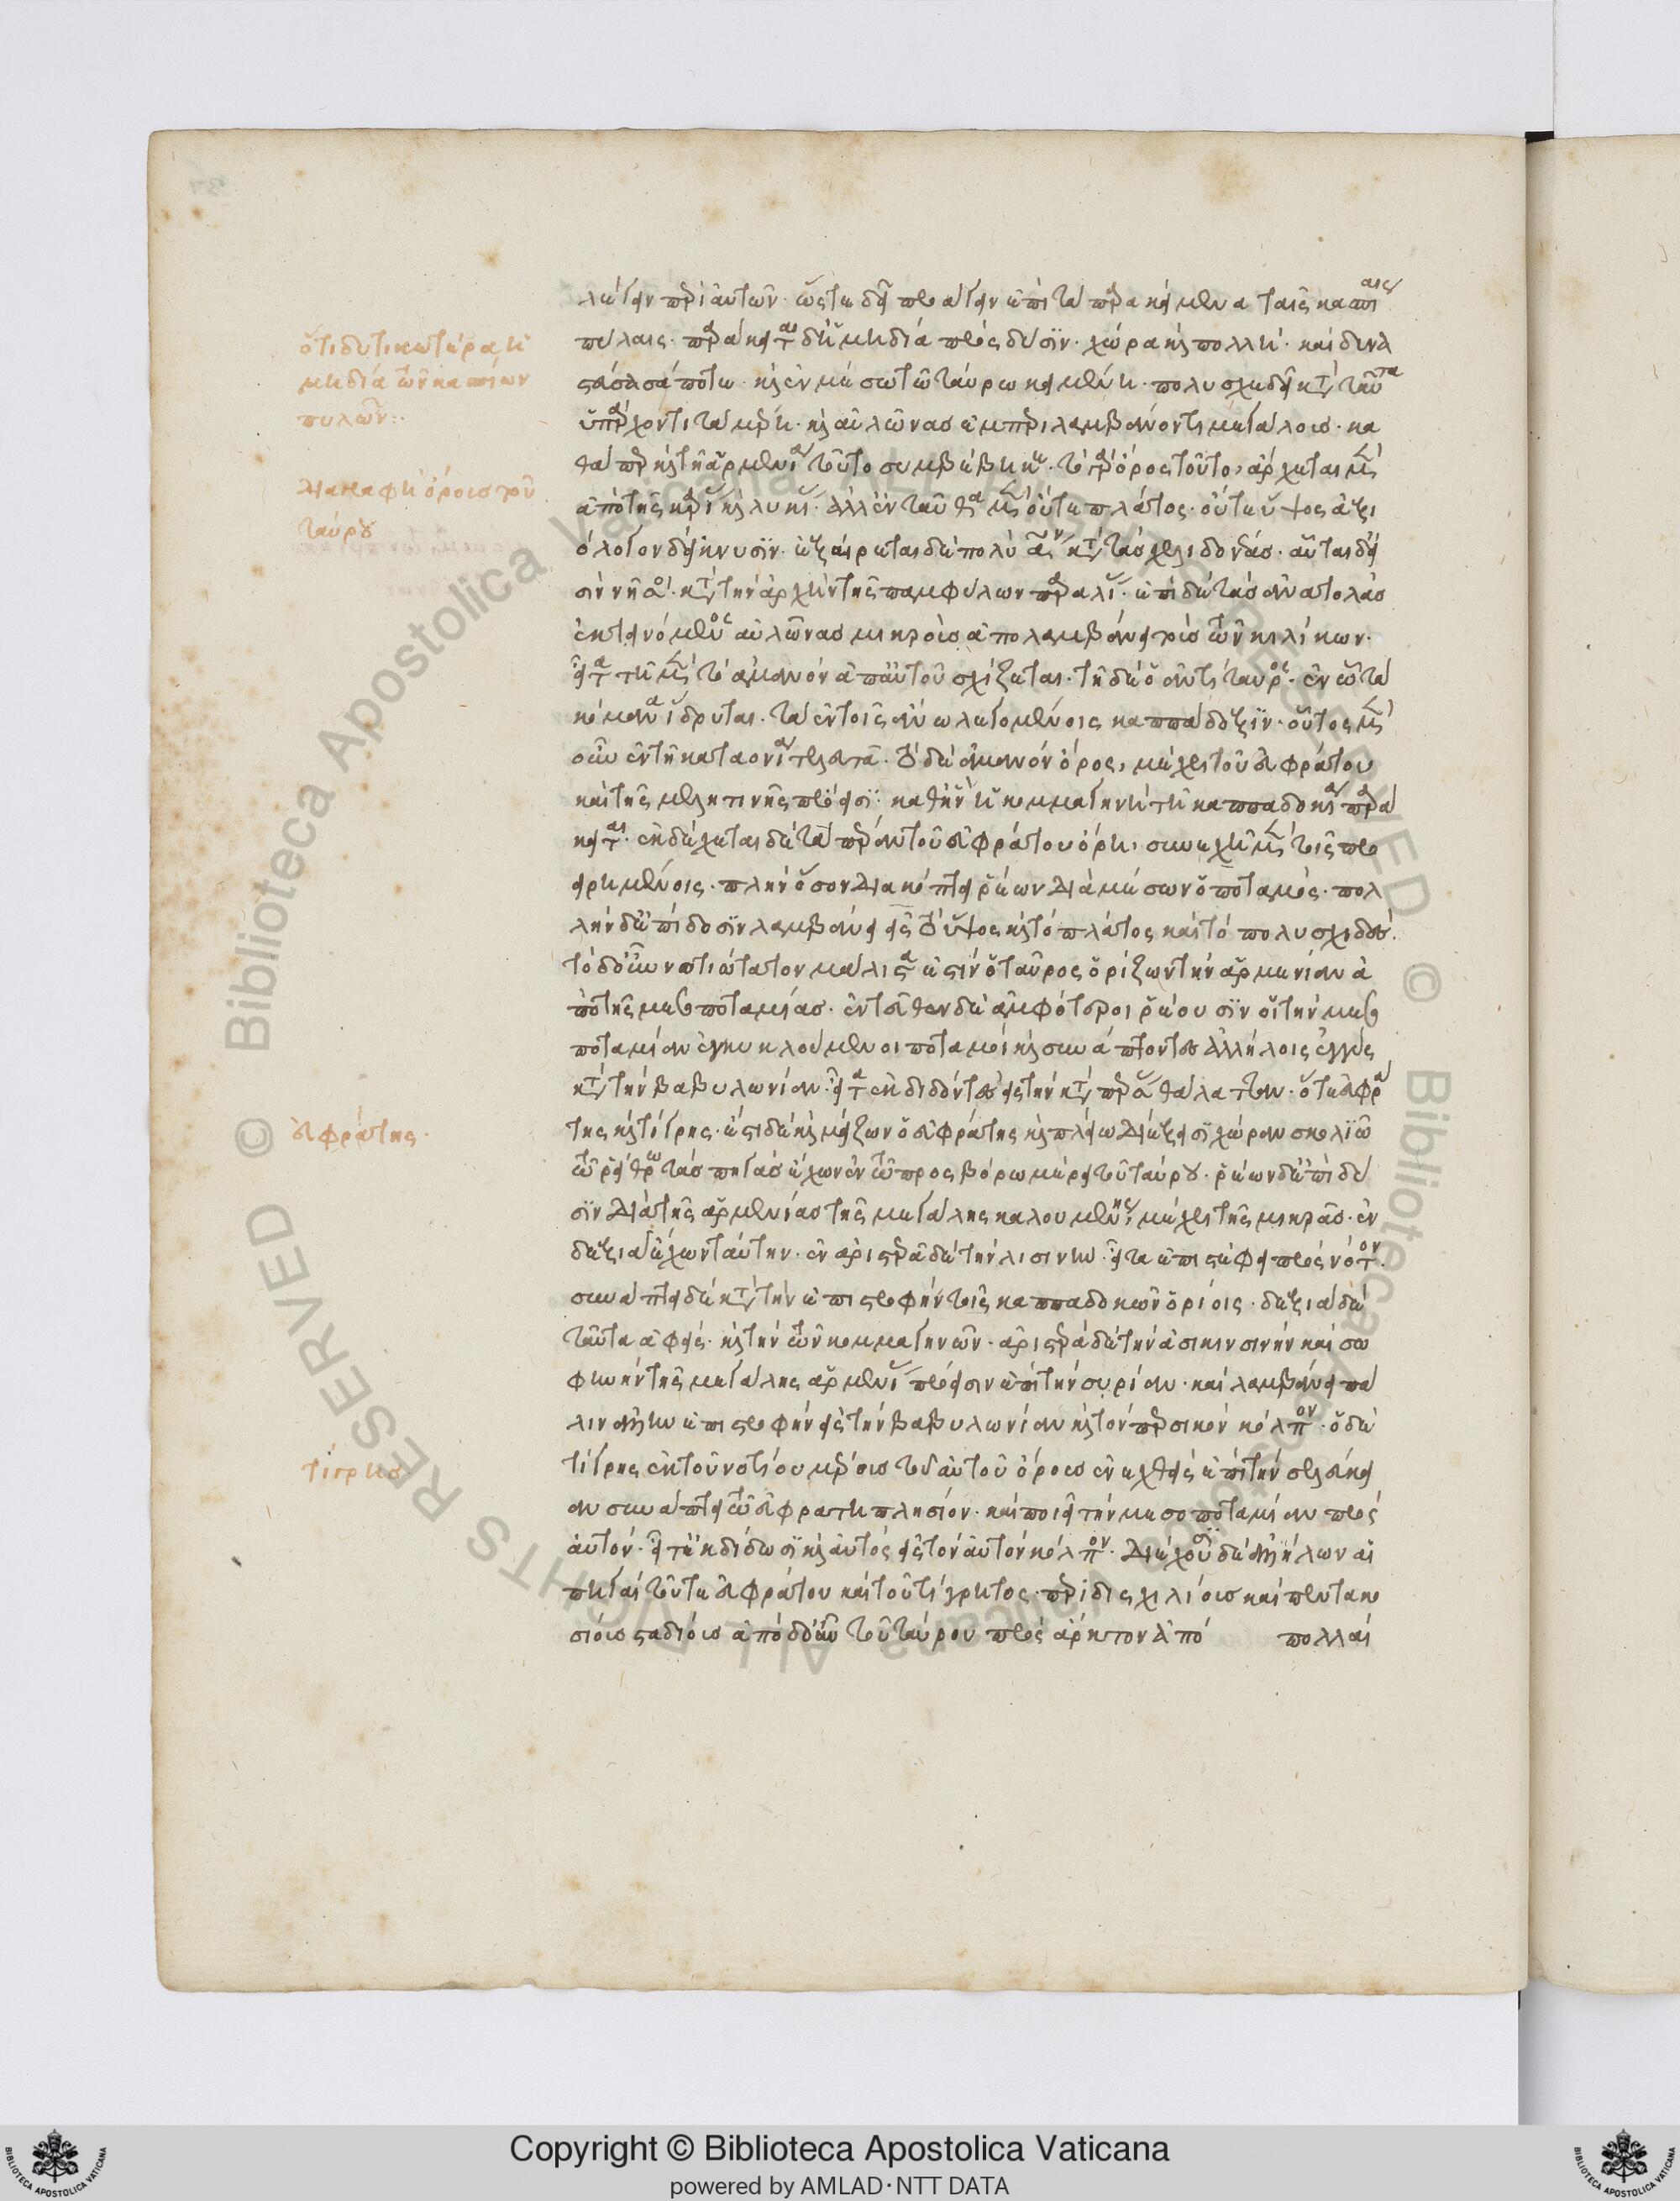 λέγειν περὶ αὐτῶν· ὥστε δεῖ προάγειν ἐπὶ τὰ παρακείμενα ταῖς κασπίαις
πύλαις· παράκειται δὲ ἡ μηδία πρὸς δύσιν· χώρα καὶ πολλή· καὶ δυνα
στεύσασά ποτε· καὶ ἐν μέσω τῶ ταύρω κειμένη· πολυσχεδεῖ κατὰ ταῦτα
ὑπάρχοντι τὰ μέρη· καὶ αὐλῶνας ἐμπεριλαμβάνοντι μεγάλους· κα
θάπερ καὶ τῆ ἀρμενία τοῦτο συμβέβηκε· τὸ γὰρ ὄρος τοῦτο, ἄρχεται μὲν
ἀπὸ τῆς καρίας καὶ λυκίας· ἀλλ' ἐνταῦθα μὲν οὔτε πλάτος· οὔτε ὕψος ἀξι
όλογον δείκνυσϊν· ἐξαίρεται δὲ πολὺ πρῶτον κατὰ τὰς χελιδονέας· αὗται δ' εἰ
σὶν νῆσοι· κατὰ τὴν ἀρχὴν τῆς παμφύλων παραλίας· ἐπὶ δὲ τὰς ἀνατολὰς
ἐκτεινόμενος αὐλῶνας μικροὺς ἀπολαμβάνει τοὺς τῶν κιλίκων·
εἶτα τῆ μὲν τὸ ἀμανὸν ἀπ' αὐτοῦ σχίζεται· τῆ δὲ ὁ ἀντίταυρος· ἐν ὧ τὰ
κόμανα ἵδρυται· τὰ ἐν τοῖς ἄνω λεγομένοις καππάδοξϊν· οὗτος μὲν
οὖν ἐν τῆ καταονία τελευτᾶ· τὸ δὲ ἀμανὸν ὄρος, μέχρι τοῦ εὐφράτου
καὶ τῆς μελητινῆς πρόεισϊ· καθ' ἣν ἡ κομμαγηνὴ τῆ καππαδοκία παρά
κειται· ἐκδέχεται δὲ τὰ πέραν τοῦ εὐφράτου ὄρη, συνεχῆ μὲν τοῖς προ
ειρημένοις· πλὴν ὅσον διακόπτει ῥέων διὰ μέσων ὁ ποταμός· πολ
λὴν δ' ἐπίδοσϊν λαμβάνει εἰς τὸ ὕψος καὶ τὸ πλάτος καὶ τὸ πολυσχιδές·
τὸ δ' οὖν νοτιώτατον μάλιστα ἐστὶν ὁ ταῦρος ὁρίζων τὴν ἀρμενίαν ἀ
πὸ τῆς μεσοποταμίας· ἐντεῦθεν δὲ ἀμφότεροι ῥέουσϊν οἱ τὴν μεσο
ποταμίαν ἐγκυκλούμενοι ποταμοὶ καὶ συνάπτοντες ἀλλήλοις ἐγγὺς
κατὰ τὴν βαβυλωνίαν· εἶτα ἐκδιδόντες εἰς τὴν κατὰ πέρσας θάλατταν· ὅ τε εὐφρά
της καὶ τίγρης· ἔστι δὲ καὶ μείζων ὁ εὐφράτης καὶ πλείω διέξεισϊ χώραν σκολϊῶ
τῶ ῥείθρω τὰς πηγὰς ἔχων ἐν τῶ προσβόρω μέρει τοῦ ταύρου· ῥέων δ' ἐπὶ δύ
σϊν διὰ τῆς ἀρμενίας τῆς μεγάλης καλουμένης, μέχρι τῆς μικρᾶς· ἐν
δεξιᾶ ἔχων ταύτην· ἐν ἀριστερᾶ δὲ τὴν λισινην· εἶτα ἐπιστέφει πρὸς νότον·
συνάπτει δὲ κατὰ τὴν ἐπιστροφὴν τοῖς καππαδοκῶν ὁρίοις· δεξιὰ δὲ
ταῦτα ἀφείς· καὶ τὴν τῶν κομμαγηνῶν· ἀριστερὰ δὲ τὴν ἀσικινσινὴν καὶ σω
φηνὴν τῆς μεγάλης ἀρμενίας πρόεισιν ἐπὶ τὴν συρίαν· καὶ λαμβάνει πά
λιν ἄλλην ἐπιστροφὴν εἰς τὴν βαβυλωνίαν καὶ τὸν περσικὸν κόλπον· ὁ δὲ
τίγρης ἐκ τοῦ νοτίου μέρους τοῦ αὐτοῦ ὄρους ἐνεχθεὶς ἐπὶ τὴν σελεύκει
αν συνάπτει τῶ εὐφράτη πλησίον· καὶ ποιεῖ τὴν μεσοποταμίαν πρὸς
αὐτόν· εἶτ' ἐκδίδωσϊ καὶ αὐτὸς εἰς τὸν αὐτὸν κόλπον· διέχουσϊ δὲ ἀλλήλων αἱ
πηγαὶ τοῦ τε εὐφράτου καὶ τοῦ τίγρητος· περὶ δισχιλίους καὶ πεντακο
σίους σταδίους ἀπὸ δ' οὖν τοῦ ταύρου πρὸς ἄρκτον ἀπὸ πολλαὶ
ὅτι δυτικωτέρα ἡ
μηδία τῶν κασπίων
πυλῶν:
διαγραφὴ ὄρους τοῦ
ταύρου
εὐφράτης·
τίγρης